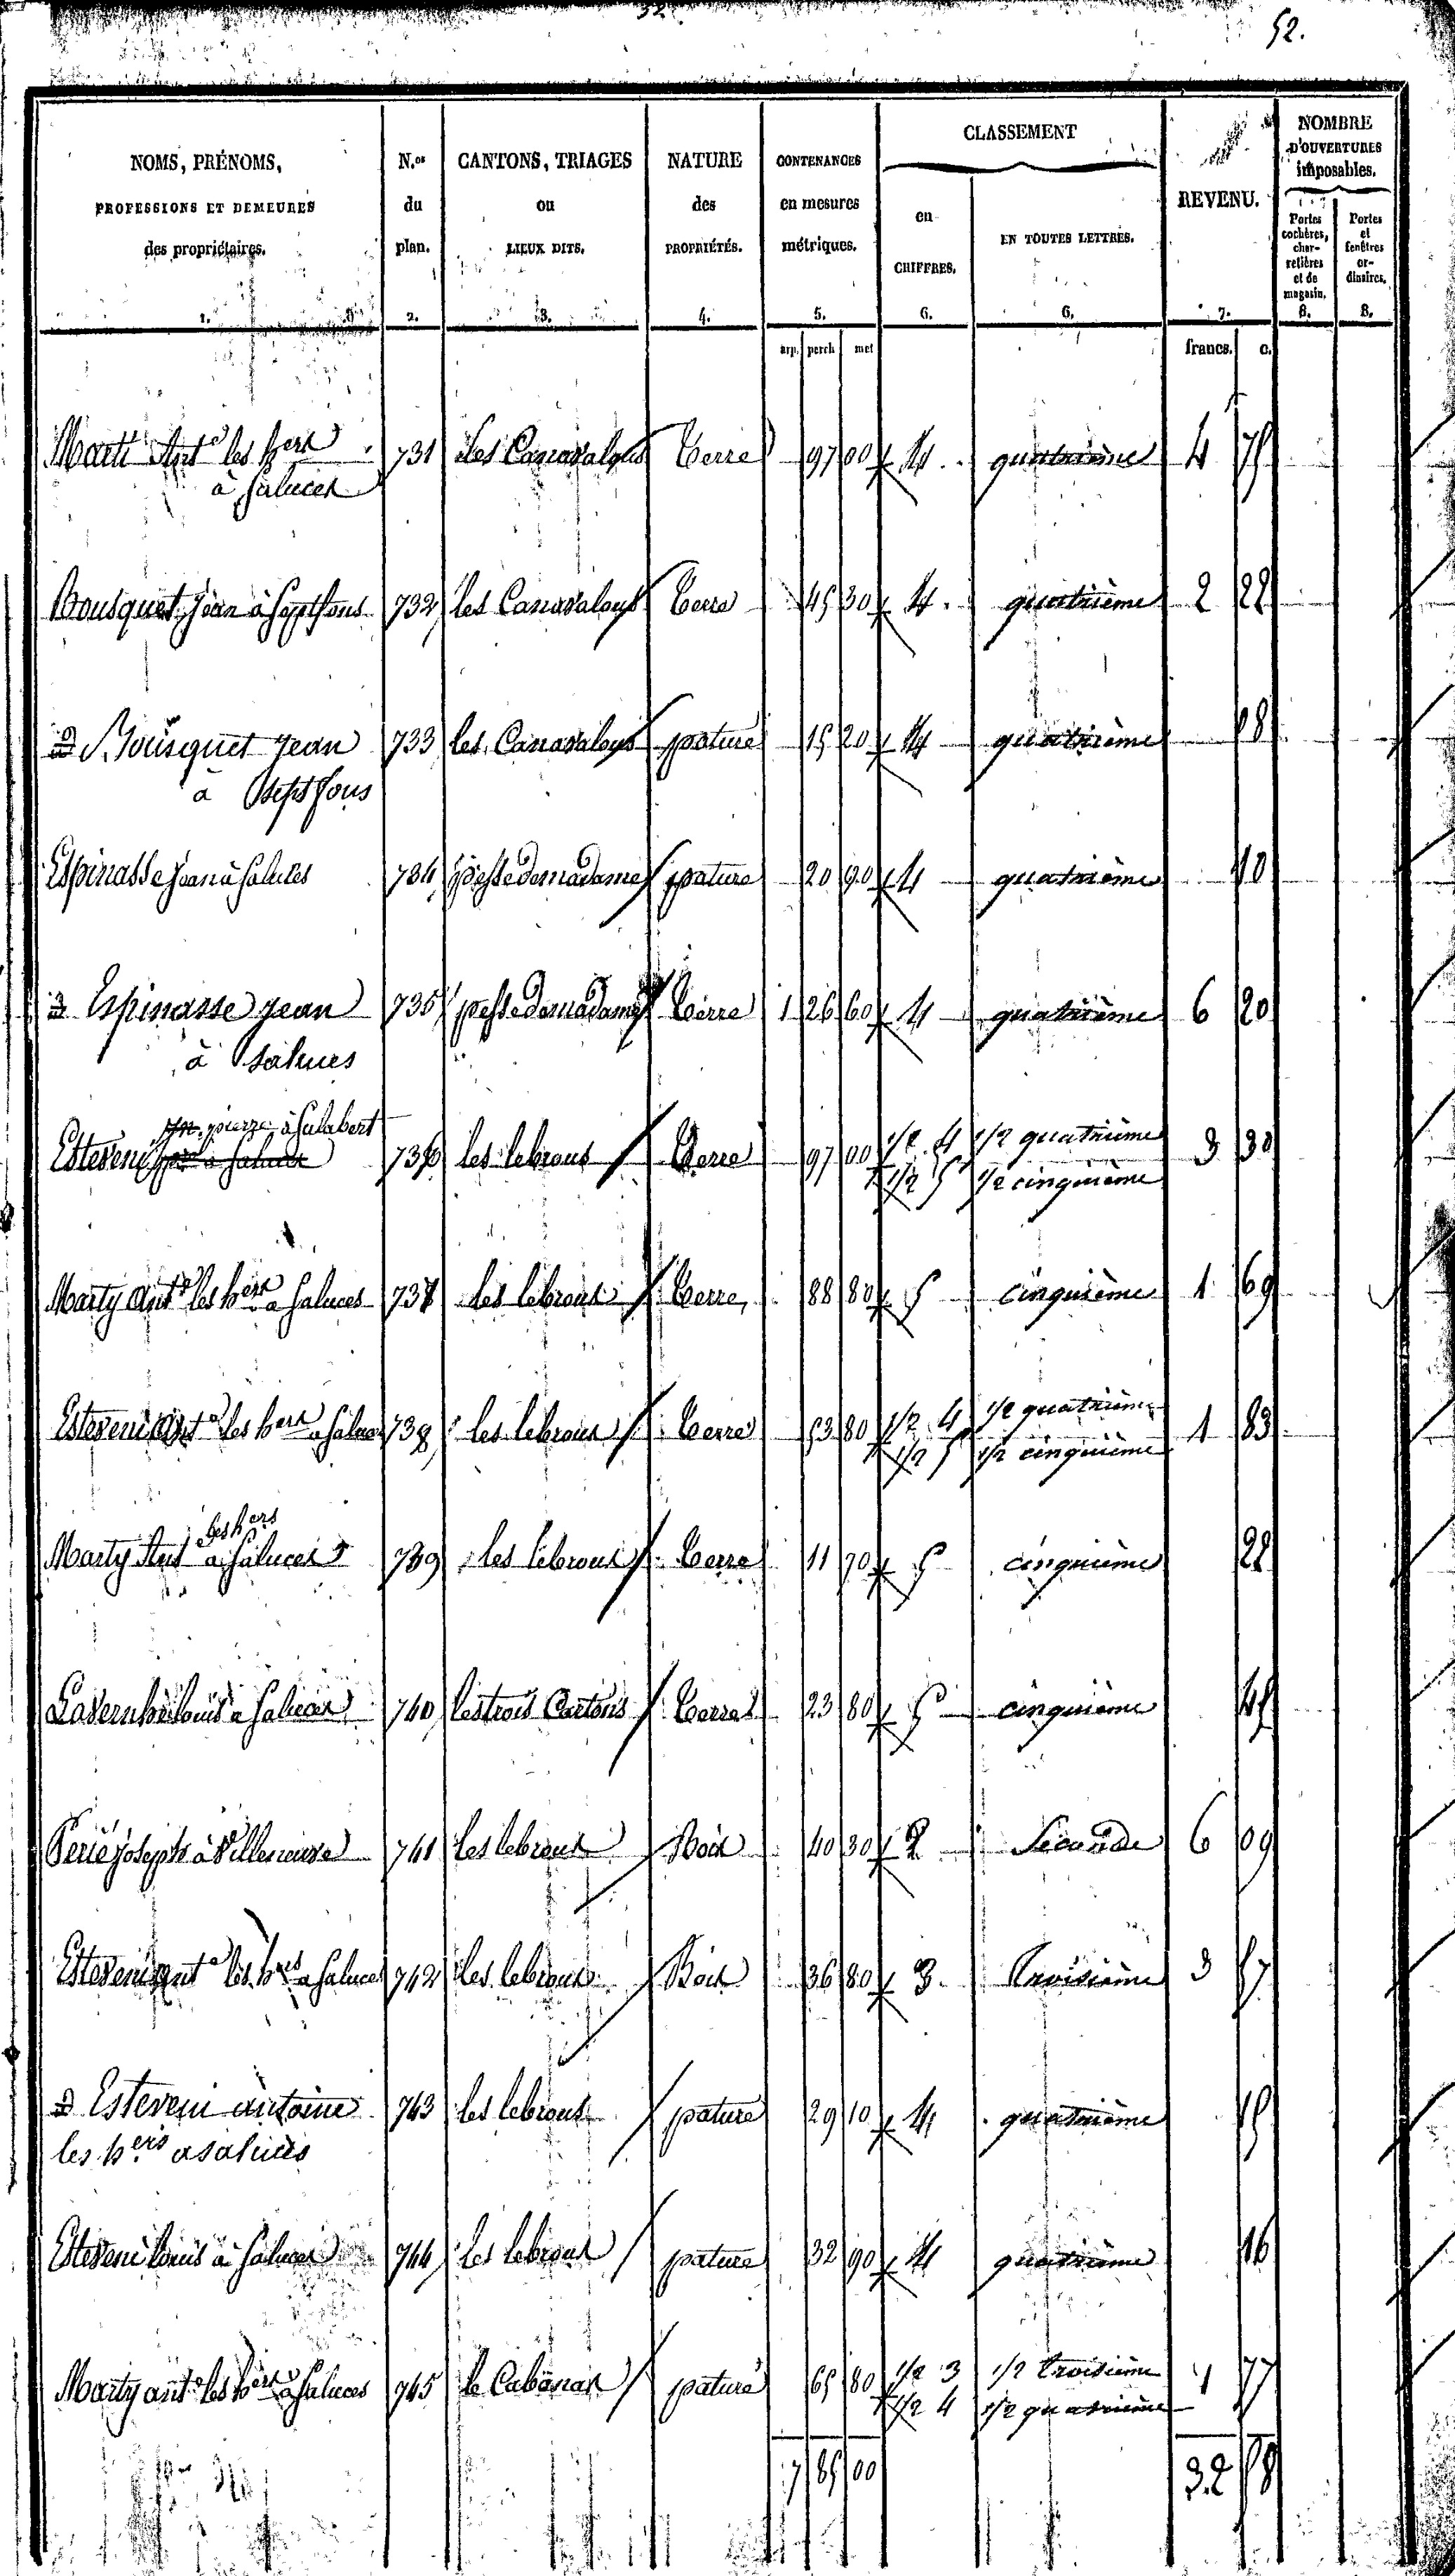 52.
NOMS, PRÉNOMS, PROFESSIONS ET DEMEURES des propriétaires. 1.
N.os du plan. 2.
CANTONS, TRIAGES ou LIEUX DITS. 3.
NATURE des PROPRIÉTÉS. 4.
CONTENANCES en mesures métriques. 5.
CLASSEMENT
en CHIFFRES. 6.
EN TOUTES LETTRES. 6.
REVENU. 7.
NOMBRE D'OUVERTURES imposables.
Portes cochères, charretières et de magasin. 8.
Portes et fenêtres ordinaires. 8.
arp. perch met francs. c.
Marti Ant.e les hers 731 les Canavalous Terre 97 00 4 quatrième 4 75
à Saluces
Bousquet Jean à Septfons 732 les Canavalous Terre 45 30 4 quatrième 2 22
Bousquet Jean 733 les Canavalous pature 15 20 4 quatrième 08
à Septfous
Espinasse Jean à Saluces 734 pesse de madame pature 20 90 4 quatrième 10
Espinasse Jean 735 pesse de madame Terre 1 26 60 4 quatrième 6 20
à Salues
pierre à Salabert
Esteveni 736 les lebrous Terre 97 00 1/2 4 1/2 quatrième 3 30
1/2 5 1/2 cinquième
Marty Ant.e les hers a Saluces 737 les lebrous Terre 88 80 5 cinquième 1 69
Esteveni Ant.e les hers a Saluces 738 les lebrous Terre 53 80 1/2 4 1/2 quatrième 1 83
1/2 5 1/2 cinquième
les hers
Marty Ant a Saluces 739 les lebrous Terre 11 70 5 cinquième 22
Louis a Saluces 740 les trois Cartons Terre 23 80 5 cinquième 45
Perié Joseph à Villeneuve 741 les lebrous Bois 40 30 2 Seconde 6 09
Esteveni Ant.e les hres a Saluces 742 les lebrous Bois 36 80 3 Troisième 3 57
Esteveni antoine 743 les lebrous pature 29 10 4 quatrième 15
les hers a saluces
Esteveni Louis à Saluces 744 les lebrous pature 32 90 4 quatrième 16
Marty ant.e les hers a Saluces 745 le Cabanas pature 65 80 1/2 3 1/2 troisième 1 77
1/2 4 1/2 quatrième
7 85 00 32 58